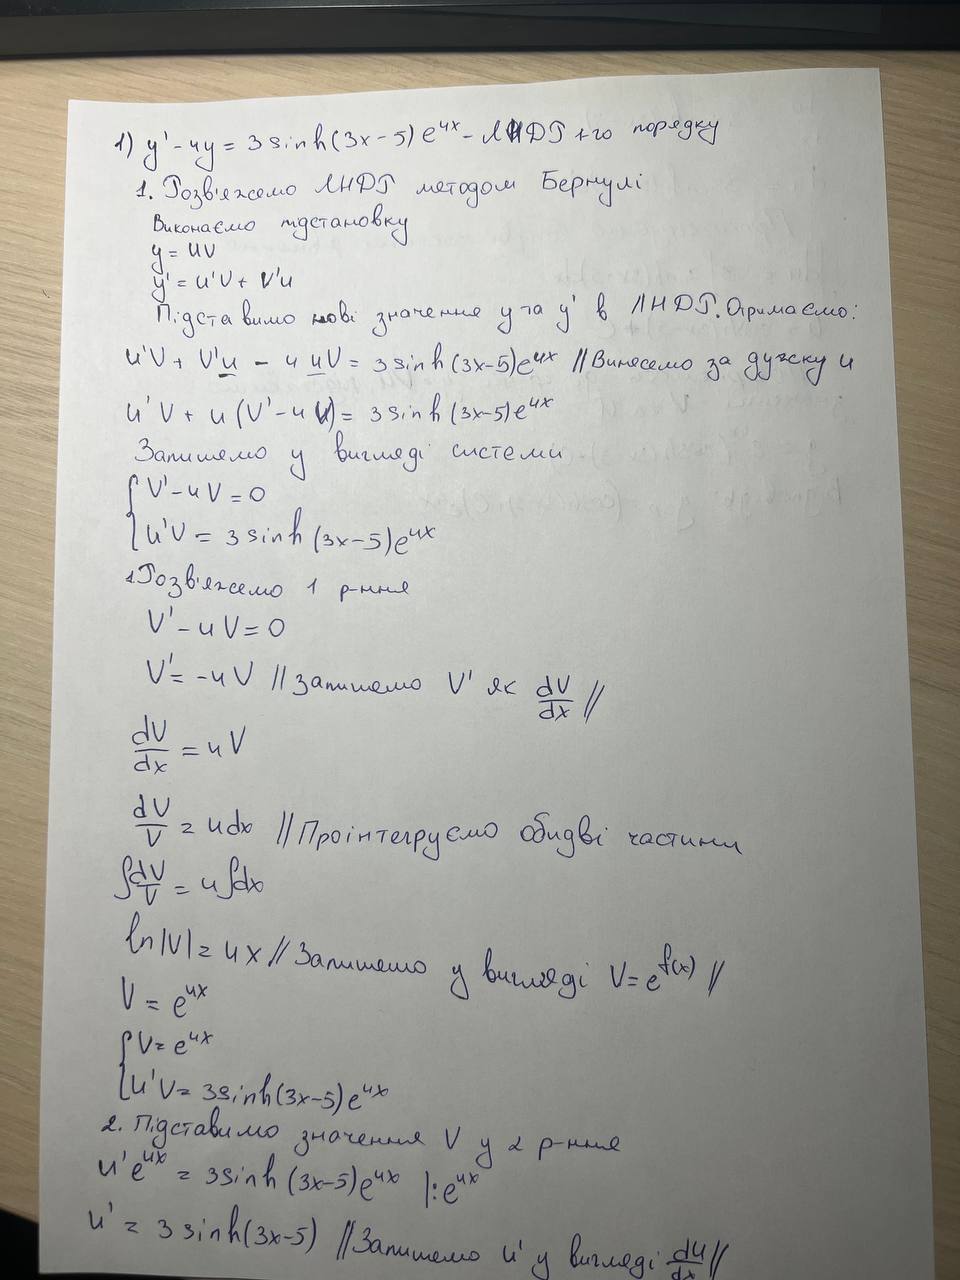 1) y' - 4y = 3 sinh(3x-5) e^{4x} - ЛНДР 1-го порядку
1. Розв'яжемо ЛНДР методом Бернулі
Виконаємо підстановку
y = UV
y' = u'V + V'u
Підставимо нові значення y та y' в ЛНДР. Отримаємо:
u'V + V'u - 4 uV = 3 sinh(3x-5)e^{4x} // Винесемо за дужку u
u'V + u(V' - 4V) = 3 sinh(3x-5)e^{4x}
Запишемо у вигляді системи
{ V' - 4V = 0
{ u'V = 3 sinh(3x-5)e^{4x}
1. Розв'яжемо 1 р-ння
V' - 4V = 0
V' = -4V // Запишемо V' як dV/dx //
dV/dx = 4V
dV/V = 4dx // Проінтегруємо обидві частини
∫dV/V = 4∫dx
ln|V| = 4x // Запишемо у вигляді V = e^{f(x)} //
V = e^{4x}
{ V = e^{4x}
{ u'V = 3sinh(3x-5)e^{4x}
2. Підставимо значення V у 2 р-ння
u'e^{4x} = 3sinh(3x-5)e^{4x} |: e^{4x}
u' = 3 sinh(3x-5) // Запишемо u' у вигляді du/dx //